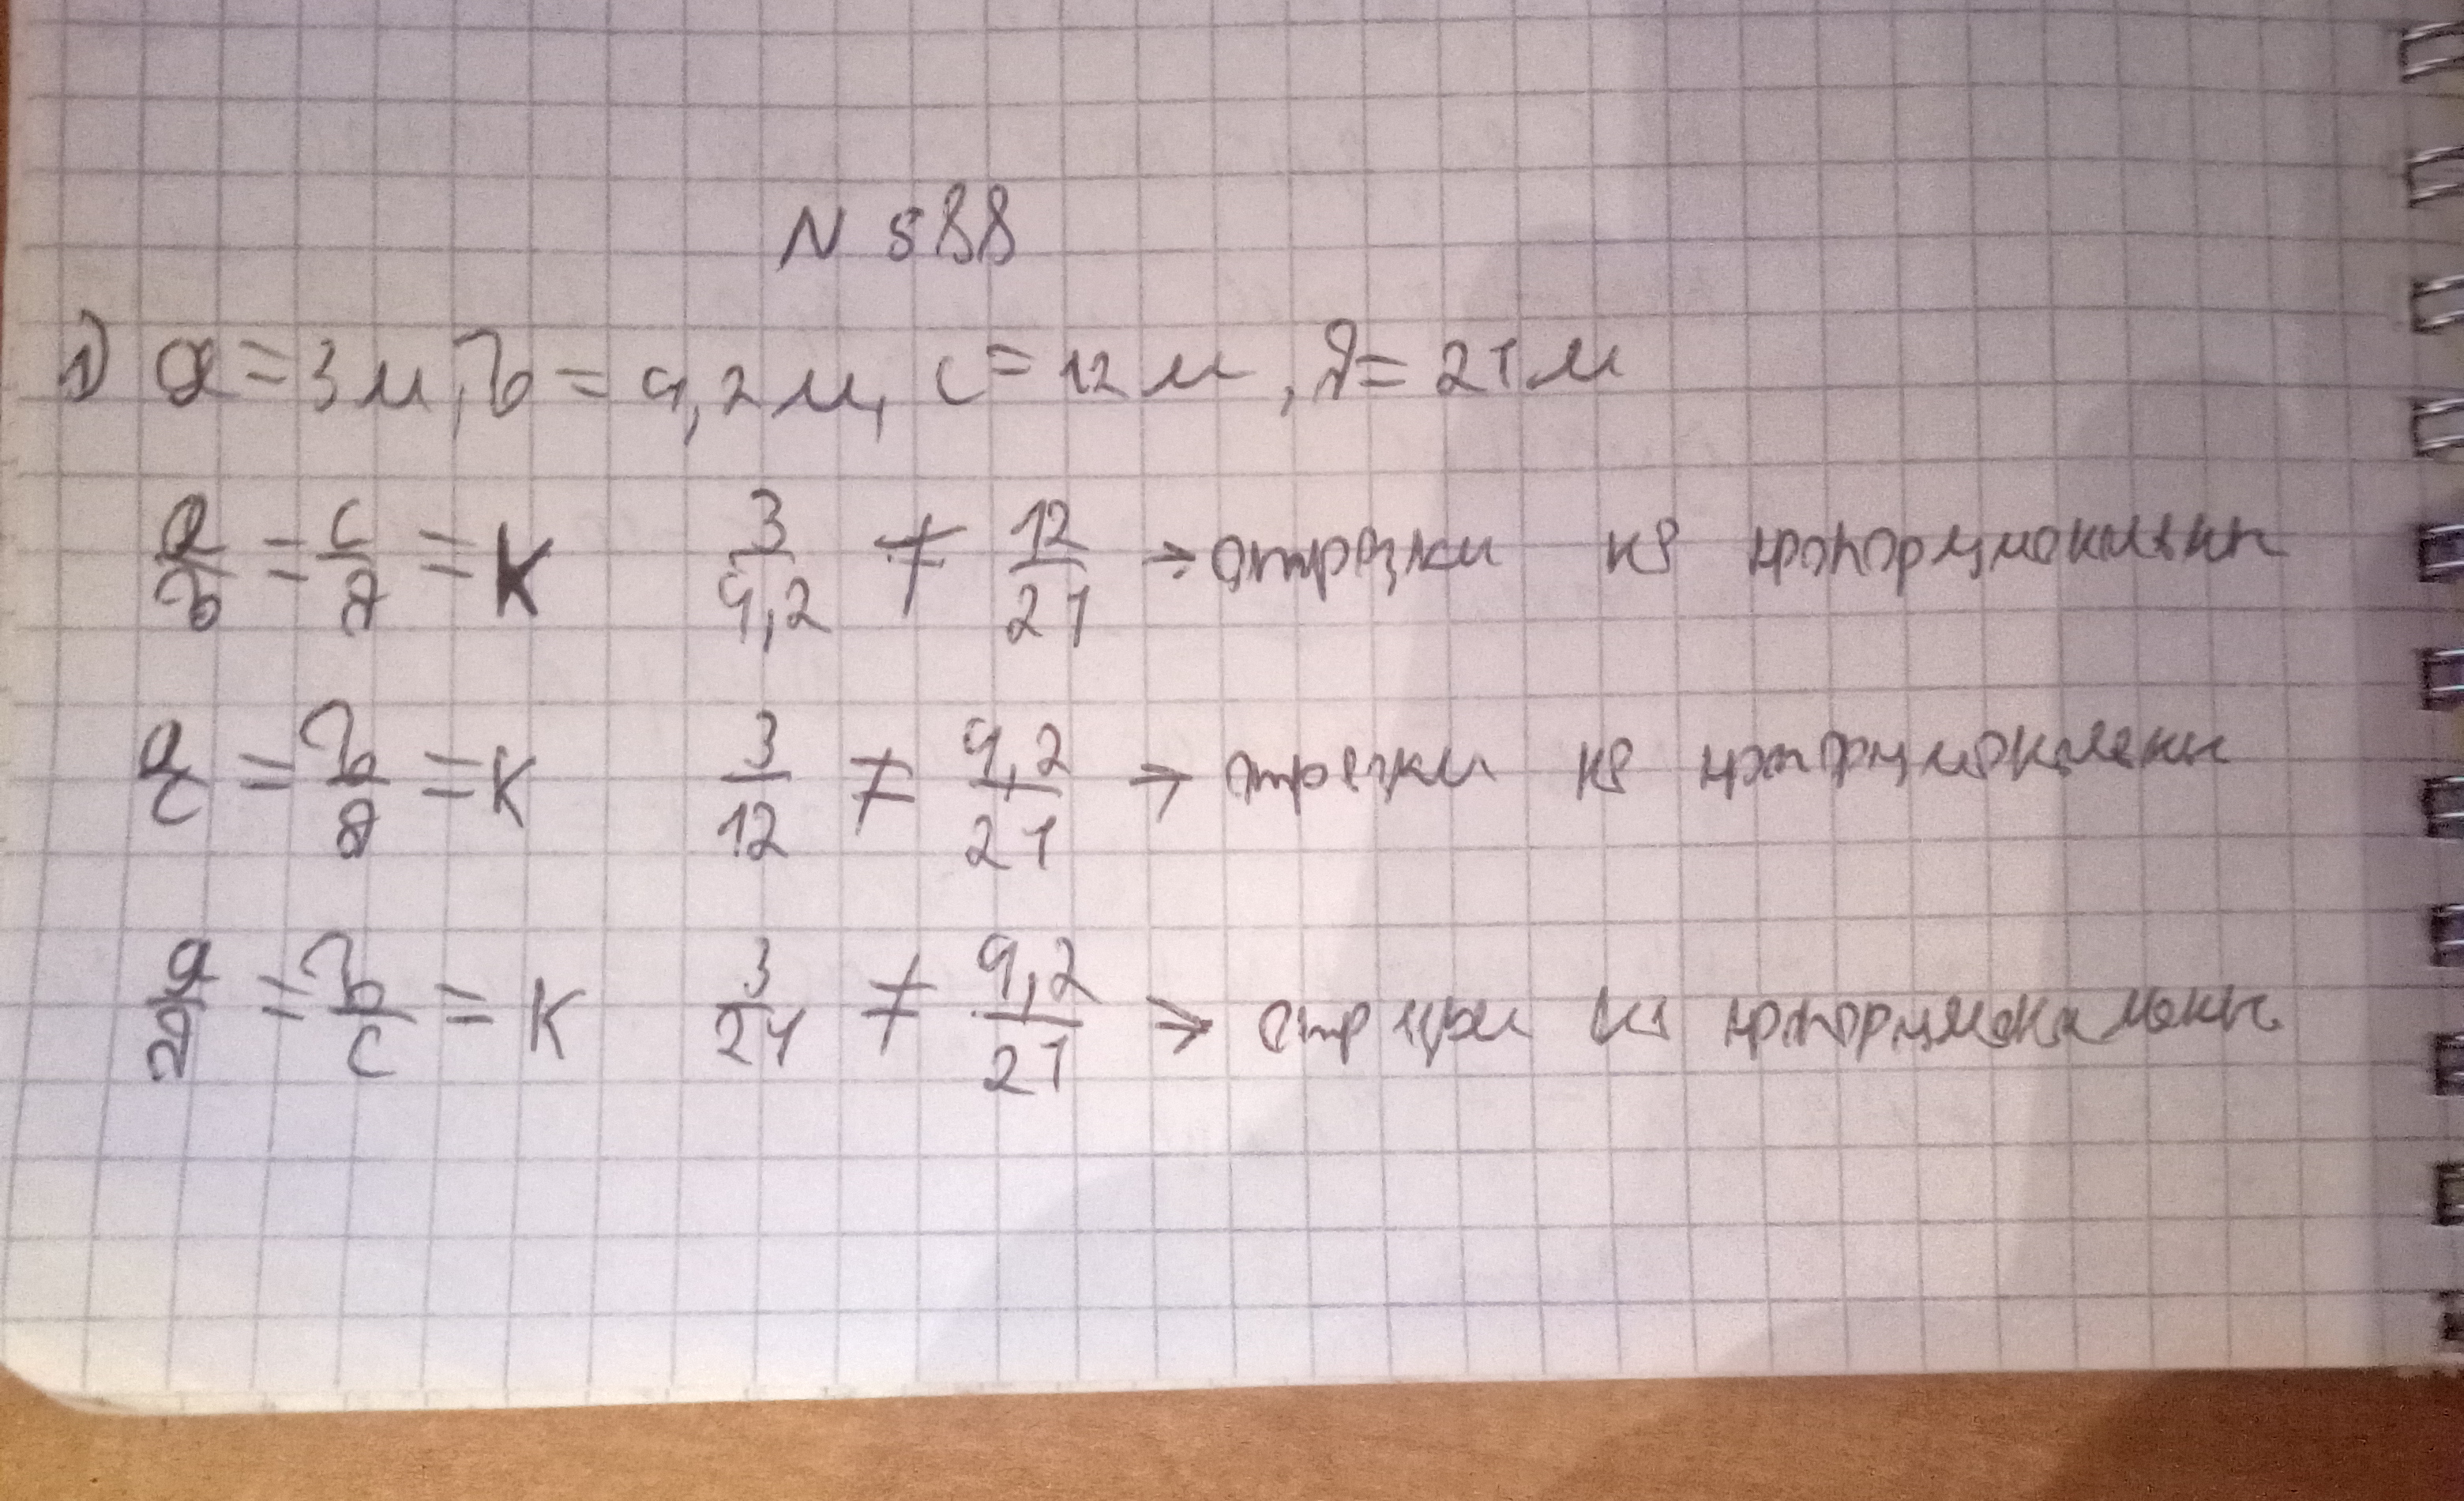 N 588
1) a = 3 м, b = 9,2 м, c = 12 м, d = 21 м
a/b = c/d = K 3/9,2 ≠ 12/21 → отрезки не пропорциональны
a/c = b/d = K 3/12 ≠ 9,2/21 → отрезки не пропорциональны
a/d = b/c = K 3/21 ≠ 9,2/21 → отрезки не пропорциональны